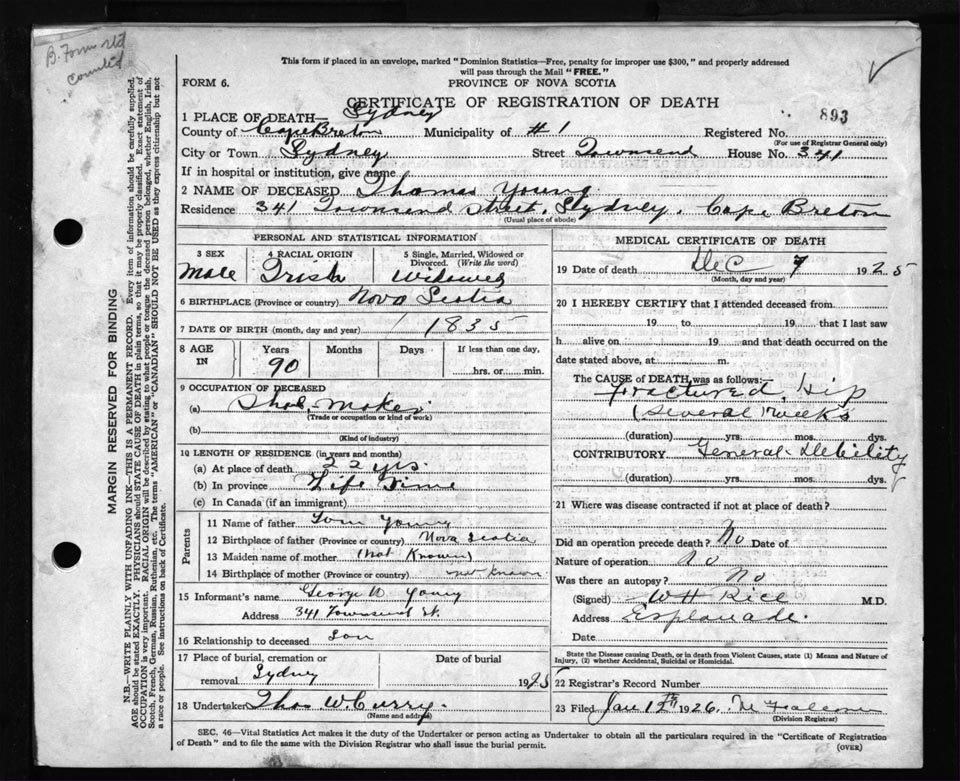 B. Form
This form if placed in an envelope, marked "Dominion Statistics—Free, penalty for improper use $300," and properly addressed
will pass through the Mail "FREE."
FORM 6.
PROVINCE OF NOVA SCOTIA
CERTIFICATE OF REGISTRATION OF DEATH
893
1 PLACE OF DEATH— Sydney
County of Cape Breton Municipality of # 1 Registered No.
(For use of Registrar General only)
City or Town Sydney Street Townsend House No. 341
If in hospital or institution, give name
2 NAME OF DECEASED Thomas Young
Residence 341 Townsend Street, Sydney, Cape Breton
(Usual place of abode)
PERSONAL AND STATISTICAL INFORMATION
3 SEX 4 RACIAL ORIGIN 5 Single, Married, Widowed or
Divorced. (Write the word)
Male Irish Widowed
6 BIRTHPLACE (Province or country) Nova Scotia
7 DATE OF BIRTH (month, day and year) 1835
8 AGE IN Years Months Days If less than one day,
90 hrs. or min.
9 OCCUPATION OF DECEASED
(a) Maker
(Trade or occupation or kind of work)
(b)
(Kind of industry)
10 LENGTH OF RESIDENCE (in years and months)
(a) At place of death 22 yrs.
(b) In province Life Time
(c) In Canada (if an immigrant)
Parents
11 Name of father Tom Young
12 Birthplace of father (Province or country) Nova Scotia
13 Maiden name of mother (Not Known)
14 Birthplace of mother (Province or country) not known
15 Informant's name George W Young
Address 341 Townsend St.
16 Relationship to deceased Son
17 Place of burial, cremation or Date of burial
removal Sydney 1925
18 Undertaker Thos W. Curry
(Name and address)
MEDICAL CERTIFICATE OF DEATH
19 Date of death Dec 7 1925
(Month, day and year)
20 I HEREBY CERTIFY that I attended deceased from
19 to 19 that I last saw
h alive on 19 and that death occurred on the
date stated above, at m.
The CAUSE of DEATH was as follows:
Fractured Hip
(Several Weeks
(duration) yrs. mos. dys.
CONTRIBUTORY General Debility
(duration) yrs. mos. dys.
21 Where was disease contracted if not at place of death?
Did an operation precede death? No Date of
Nature of operation No
Was there an autopsy? No
(Signed) W H Rice M.D.
Address Esplanade.
Date
State the Disease causing Death, or in death from Violent Causes, state (1) Means and Nature of
Injury, (2) whether Accidental, Suicidal or Homicidal.
22 Registrar's Record Number
23 Filed Jan 1926
(Division Registrar)
SEC. 46—Vital Statistics Act makes it the duty of the Undertaker or person acting as Undertaker to obtain all the particulars required in the "Certificate of Registration
of Death" and to file the same with the Division Registrar who shall issue the burial permit.
(OVER)
MARGIN RESERVED FOR BINDING
N.B.—WRITE PLAINLY WITH UNFADING INK—THIS IS A PERMANENT RECORD. Every item of information should be carefully supplied.
AGE should be stated EXACTLY. PHYSICIANS should STATE CAUSE OF DEATH in plain terms, so that it may be properly classified. Exact statement of
OCCUPATION is very important. RACIAL ORIGIN will be described by stating to what people or tongue the deceased person belonged, whether English, Irish,
Scotch, French, German, Russian, Ruthenian, etc. The terms "AMERICAN" or "CANADIAN" SHOULD NOT BE USED as they express citizenship but not
a race or people. See instructions on back of Certificate.